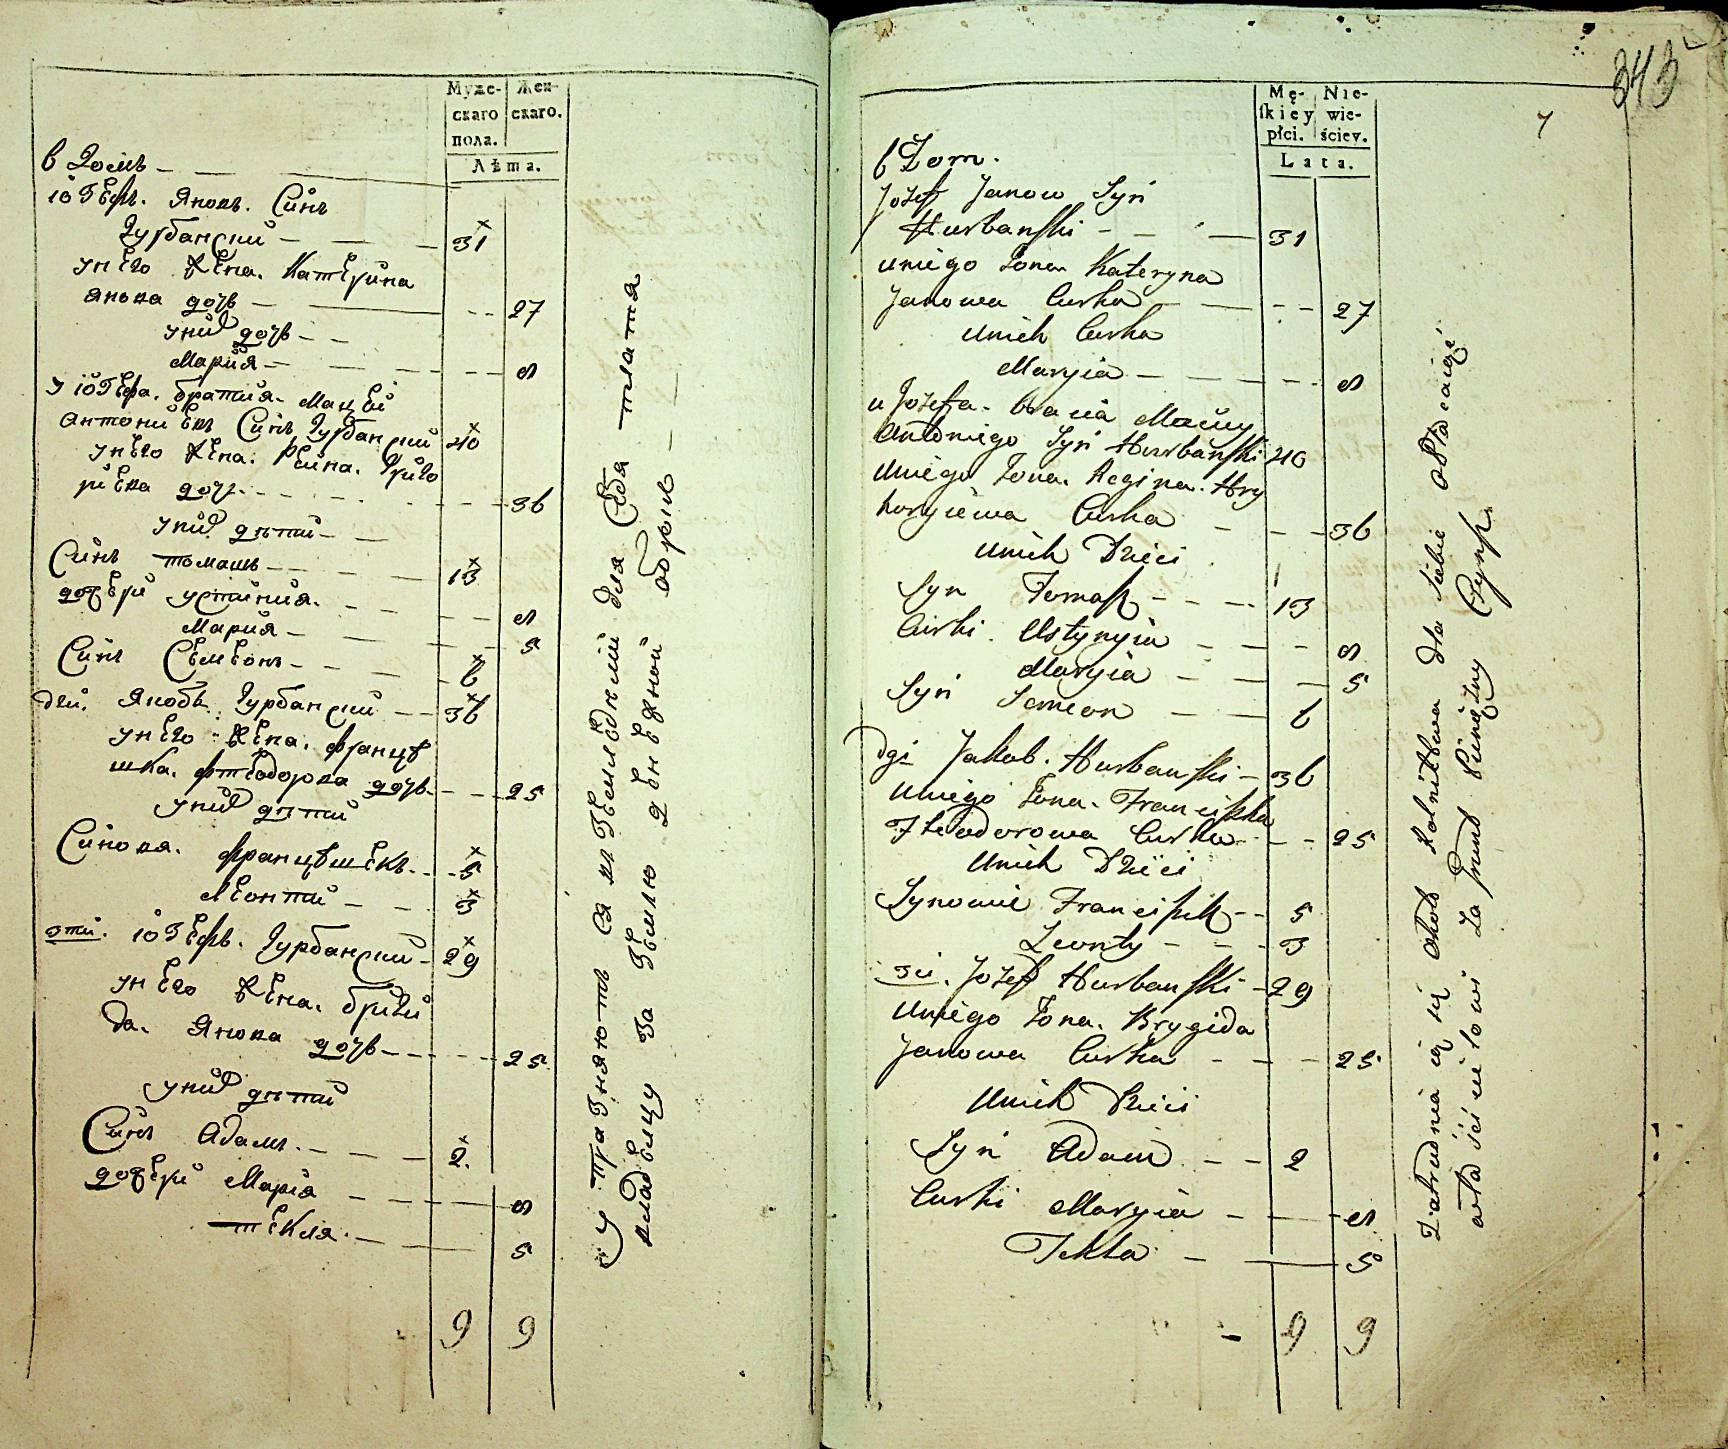 Муже-
скаго
пола.
Жен-
скаго.
Лѣта.
в Домъ
іозефъ. Яновъ. Синъ
Гурбанский 31
у него жена. Катерина
Янова дочь 27
у них дочь
Мария 8
у іозефа. братия. Мацей
Антониевъ Синъ Гурбанский 40
у него жена. Реина. Григо
риева дочь 36
у них дѣти
Синъ томашъ 13
дочери устиния. 8
Мария 5
Синъ Семеонъ 6
Якобъ Гурбанский 36
у него жена. францѣ
шка. фтеодорова дочь 25
у них дѣти
Синовя. францѣшекъ 5
Леонтий 3
3тй. іозефъ. Гурбанский 29
у него жена. бриги
да. Янова дочь 25
у них дѣти
Синъ Адамъ 2
дочери Мария 8
текля. 5
9 9
для себя платя
за землю денежной
343
7
Mę-
skiey
płci.
Nie-
wie-
ściey.
Lata.
6 Dom.
Jozef Janow Syn
Hurbanski 31
u niego Zona Kateryna
Janowa Curka 27
u nich Curka
Maryia 8
u Jozefa. bracia Maciey
Antoniego Syn Hurbanski 40
u niego Zona. Regina. Hry
horyiewa Curka 36
u nich Dzieci
Syn Tomasz 13
Curki Ustynyia 8
Maryia 5
Syn Semeon 6
2gi Jakob. Hurbanski 36
u niego Zona. Franciszka
Fteodorowa Curka 25
u nich Dzieci
Synowie Franciszek 5
Leonty 3
3ci. Jozeff Hurbanski 29
u niego Zona. Brygida
Janowa Curka 25
u nich Dzieci
Syn Adam 2
Curki Maryia 8
Tekla 5
9 9
Zatrudniaią się około Rolnictwa dla siebie opłacaiąc
właścicielowi za grunt pieniężny Czynsz